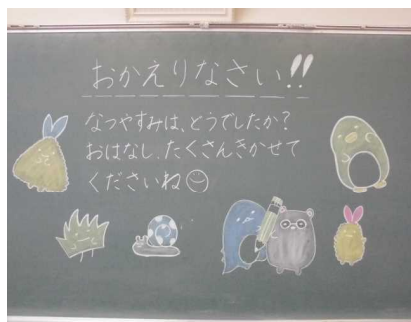 おかえりなさい!!
なつやすみは、どうでしたか?
おはなし、たくさんきかせて
くださいね☺